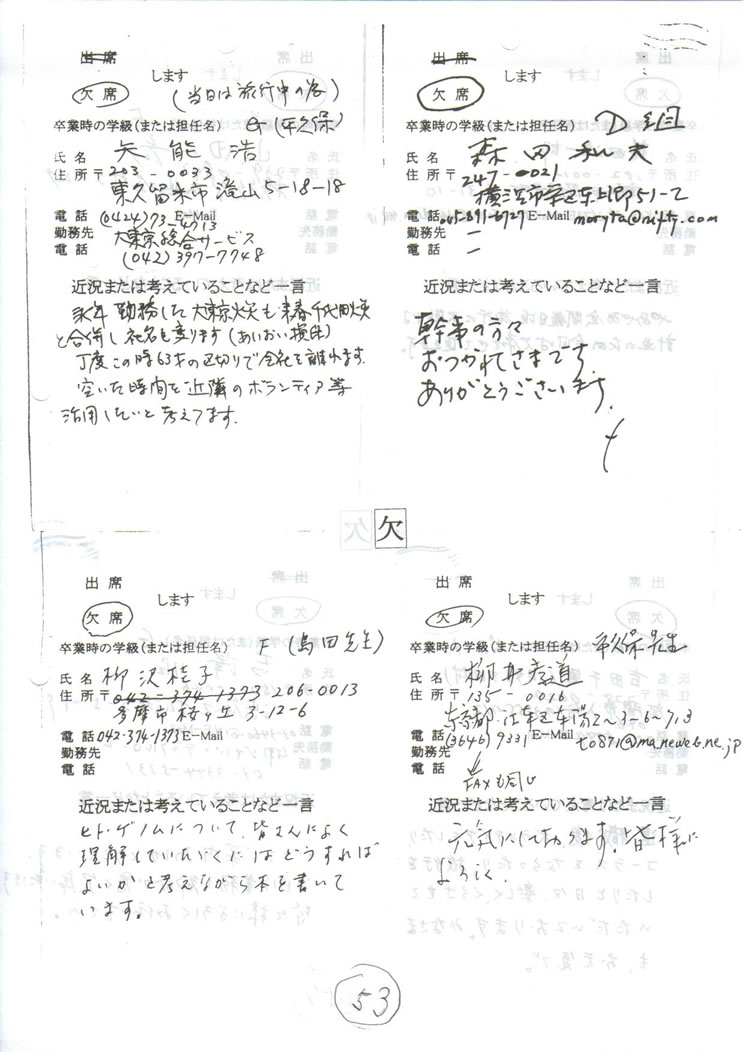 出 席
します
欠 席
(当日は旅行中の為)
卒業時の学級(または担任名) G (平久保)
氏 名 矢 能 浩
住 所 〒 203-0033
東久留米市滝山5-18-18
電 話 (0424)73-4713 E-Mail
勤務先 大東京総合サービス
電 話 (042) 397-7748
近況または考えていることなど一言
永年勤務した大東京火災も来春千代田火災
と合併し社名も変ります(あいおい損保)
丁度この時63才の区切りで会社を離れます.
空いた時間を近隣のボランティア等
活用したいと考えてます.
出 席
します
欠 席
卒業時の学級(または担任名) D組
氏 名 森 田 夫
住 所 〒 247-0021
横浜市栄区東上郷51-2
電 話 045-891-6727 E-Mail moryta@nifty.com
勤務先 ー
電 話 ー
近況または考えていることなど一言
幹事の方々
おつかれさまです.
ありがとうございます.
欠
出 席
します
欠 席
卒業時の学級(または担任名) F (島田先生)
氏 名 柳 沢 桂 子
住 所 〒 042-374-1373 206-0013
多摩市桜ヶ丘 3-12-6
電 話 042-374-1373 E-Mail
勤務先
電 話
近況または考えていることなど一言
ヒト・ゲノムについて、皆さんによく
理解していたゞくにはどうすれば
よいかと考えながら本を書いて
います。
出 席
します
欠 席
卒業時の学級(または担任名) 平久保先生
氏 名 柳井彦道
住 所 〒 135-0016
東京都江東区東陽2-3-6-713
電 話 (3646) 9331 E-Mail to871@ma.neweb.ne.jp
勤務先
電 話
FAXも同じ
近況または考えていることなど一言
元気にしております. 皆様に
よろしく.
53